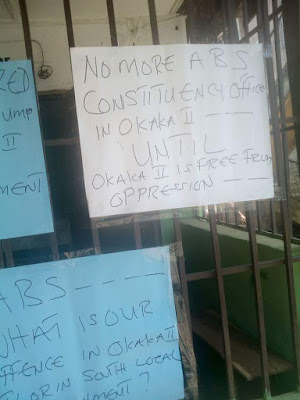 RED
UMP
II
MENT
NO MORE ABS
CONSTITUENCY OFFICE
IN OKAKA II ----
UNTIL
OKAKA II IS FREE FROM
OPPRESSION ----
ABS ----
WHAT IS OUR
OFFENCE IN OKAKA II
SOUTH LOCAL